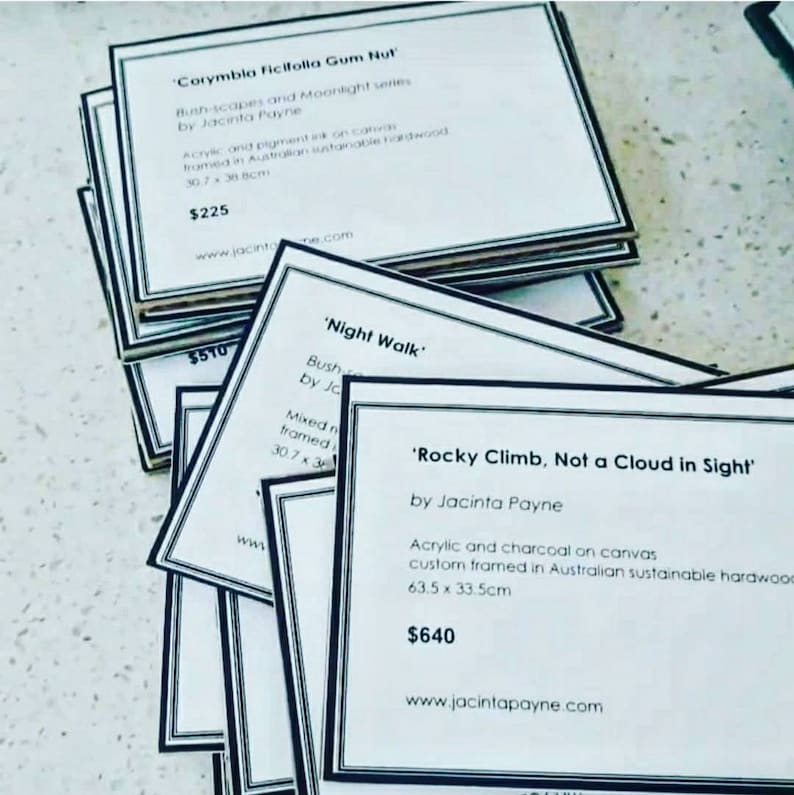 'Corymbia Ficifolia Gum Nut'
Bush-scapes and Moonlight series
by Jacinta Payne
Acrylic and pigment ink on canvas
framed in Australian sustainable hardwood
30.7 x 38.8cm
$225
$510
'Night Walk'
by
Mixed
framed
30.7 x
'Rocky Climb, Not a Cloud in Sight'
by Jacinta Payne
Acrylic and charcoal on canvas
custom framed in Australian sustainable
63.5 x 33.5cm
$640
www.jacintapayne.com